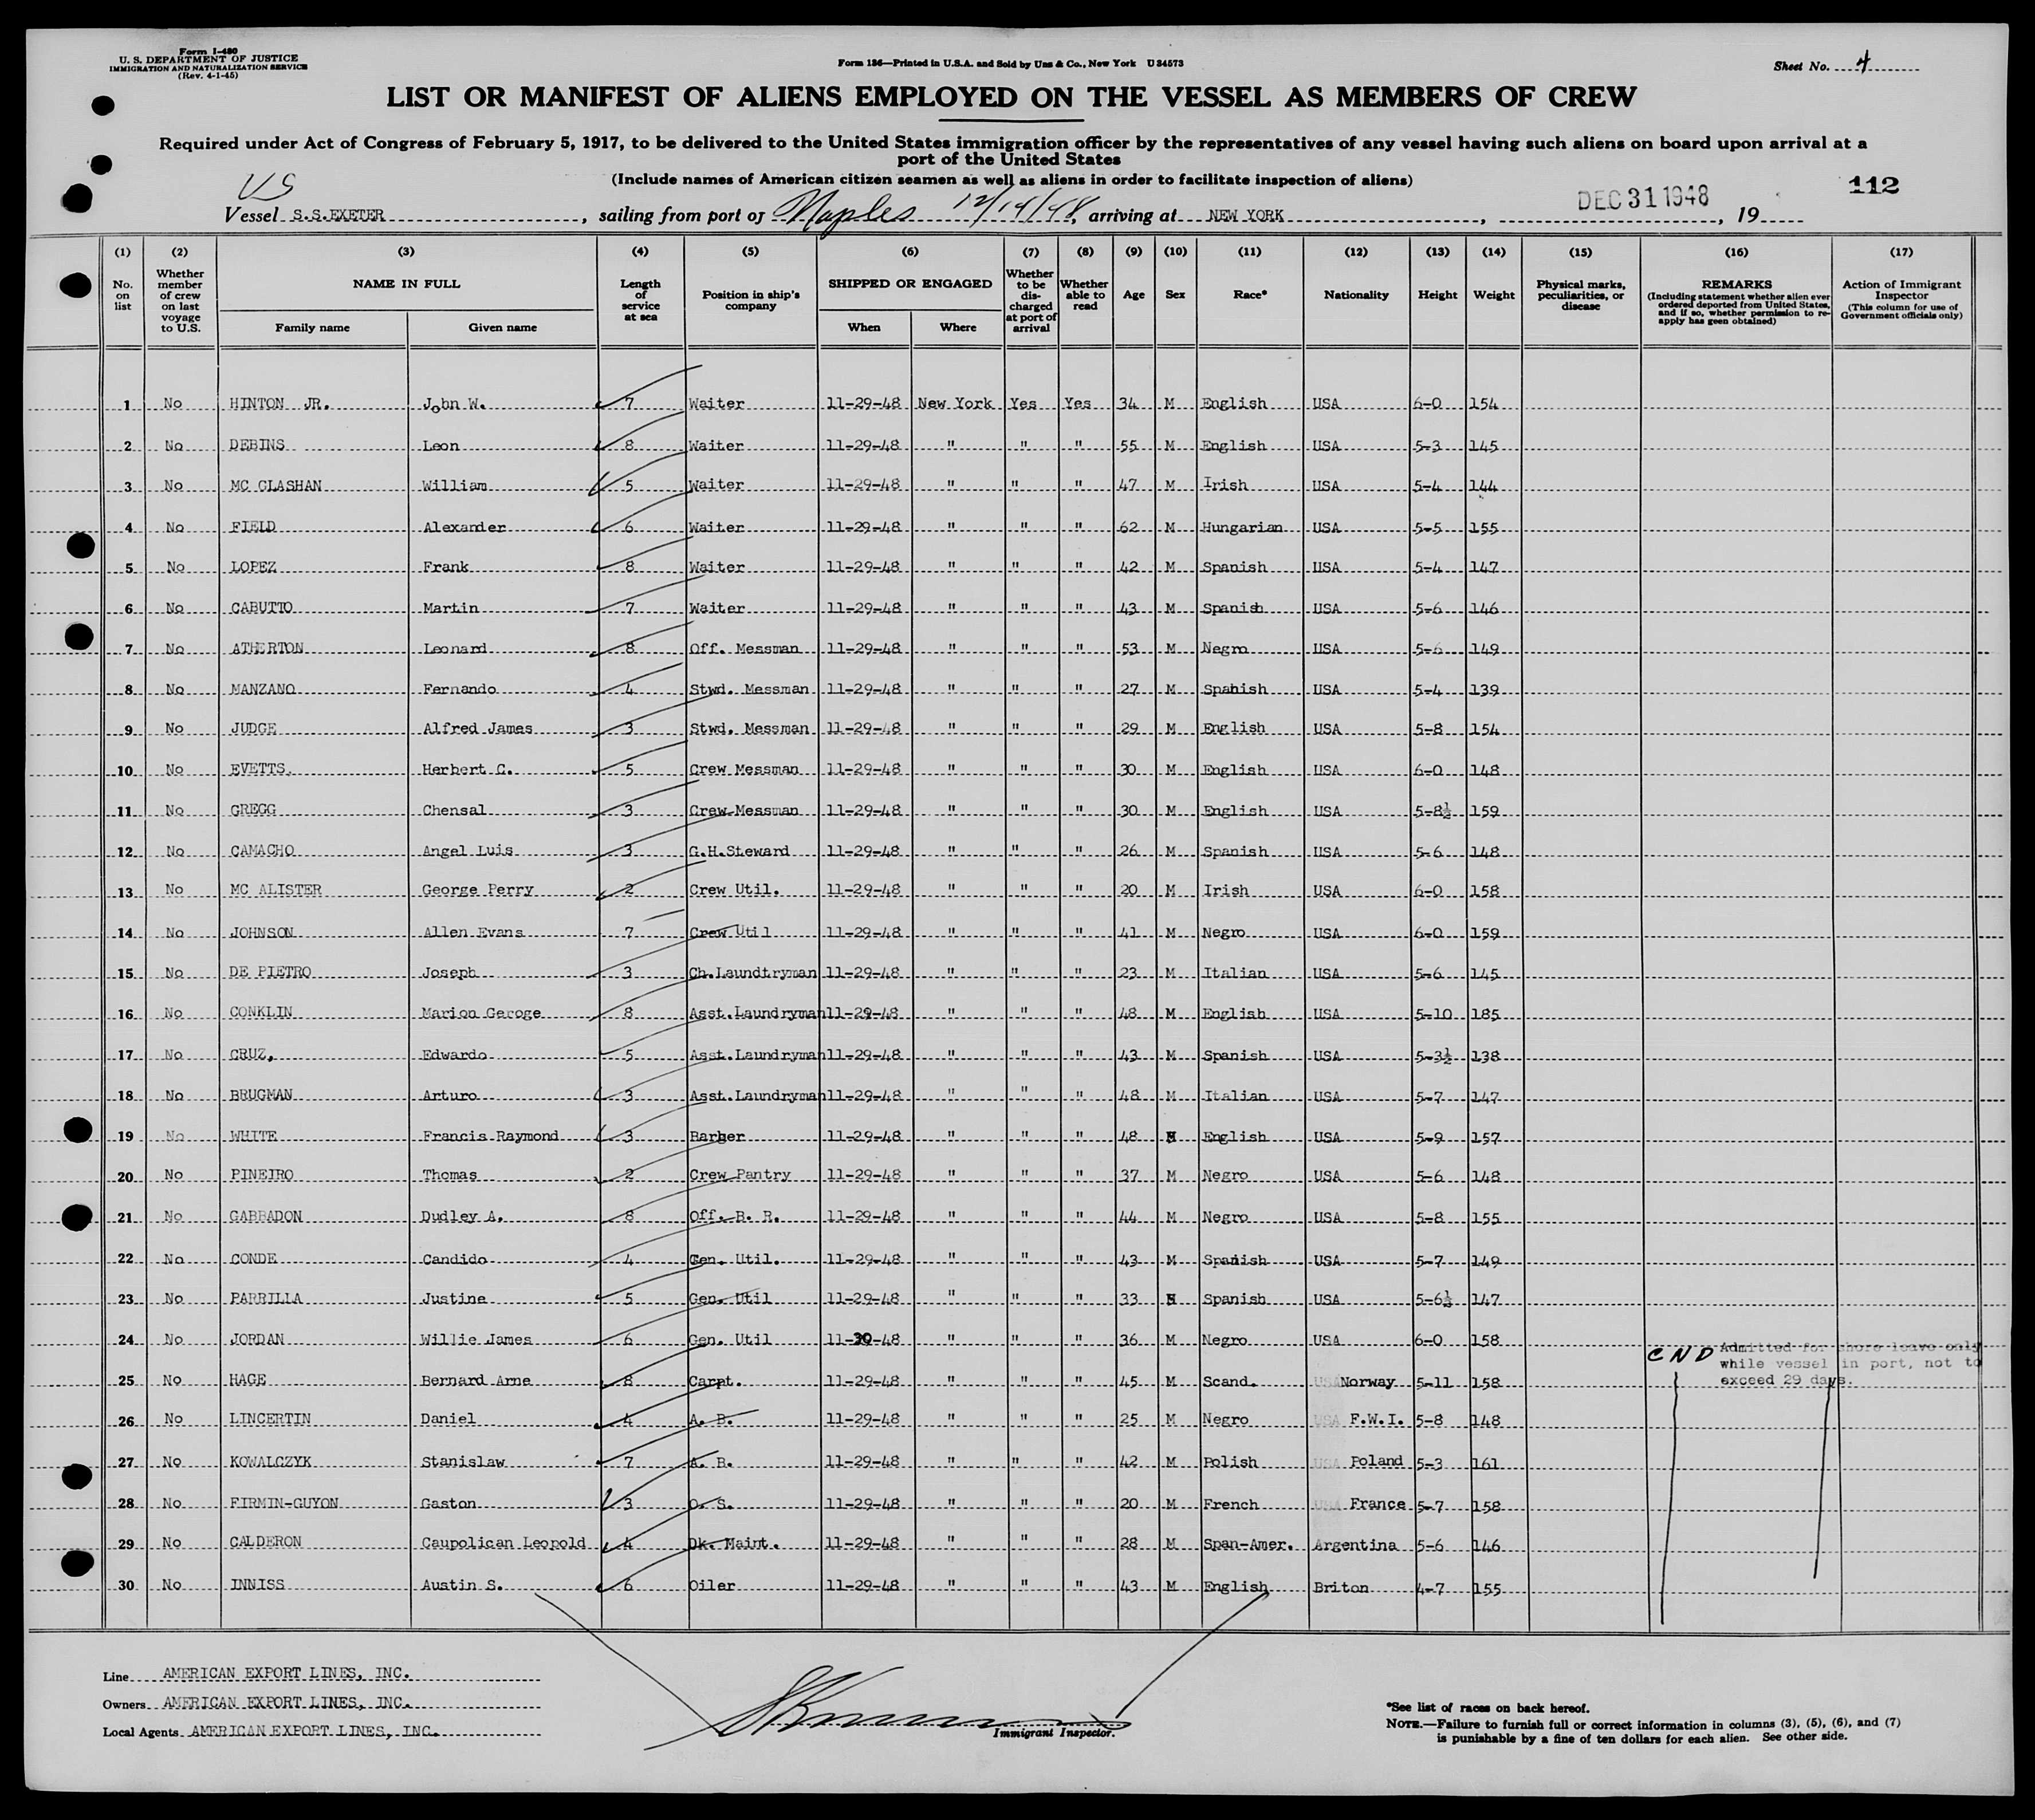 Form I-480
U. S. DEPARTMENT OF JUSTICE
IMMIGRATION AND NATURALIZATION SERVICE
(Rev. 4-1-45)
Form 186—Printed in U.S.A. and Sold by Unz & Co., New York U 34573
Sheet No. 4
LIST OR MANIFEST OF ALIENS EMPLOYED ON THE VESSEL AS MEMBERS OF CREW
Required under Act of Congress of February 5, 1917, to be delivered to the United States immigration officer by the representatives of any vessel having such aliens on board upon arrival at a
port of the United States
(Include names of American citizen seamen as well as aliens in order to facilitate inspection of aliens)
US
112
Vessel S.S.EXETER, sailing from port of Naples 12/14/48, arriving at NEW YORK, DEC 31 1948, 19
(1) (2) (3) (4) (5) (6) (7) (8) (9) (10) (11) (12) (13) (14) (15) (16) (17)
No. on list
Whether member of crew on last voyage to U.S.
NAME IN FULL
Family name Given name
Length of service at sea
Position in ship's company
SHIPPED OR ENGAGED
When Where
Whether to be discharged at port of arrival
Whether able to read
Age Sex Race* Nationality Height Weight
Physical marks, peculiarities, or disease
REMARKS
(Including statement whether alien ever ordered deported from United States, and if so, whether permission to re-apply has geen obtained)
Action of Immigrant Inspector
(This column for use of Government officials only)
1 No HINTON JR. John W. 7 Waiter 11-29-48 New York Yes Yes 34 M English USA 6-0 154
2 No DEBINS Leon 8 Waiter 11-29-48 " " " 55 M English USA 5-3 145
3 No MC CLASHAN William 5 Waiter 11-29-48 " " " 47 M Irish USA 5-4 144
4 No FIELD Alexander 6 Waiter 11-29-48 " " " 62 M Hungarian USA 5-5 155
5 No LOPEZ Frank 8 Waiter 11-29-48 " " " 42 M Spanish USA 5-4 147
6 No CABUTTO Martin 7 Waiter 11-29-48 " " " 43 M Spanish USA 5-6 146
7 No ATHERTON Leonard 8 Off. Messman 11-29-48 " " " 53 M Negro USA 5-6 149
8 No MANZANO Fernando 4 Stwd. Messman 11-29-48 " " " 27 M Spanish USA 5-4 139
9 No JUDGE Alfred James 3 Stwd. Messman 11-29-48 " " " 29 M English USA 5-8 154
10 No EVETTS. Herbert C. 5 Crew Messman 11-29-48 " " " 30 M English USA 6-0 148
11 No GREGG Chensal 3 Crew Messman 11-29-48 " " " 30 M English USA 5-8½ 159
12 No CAMACHO Angel Luis 3 G.H.Steward 11-29-48 " " " 26 M Spanish USA 5-6 148
13 No MC ALISTER George Perry 2 Crew Util. 11-29-48 " " " 20 M Irish USA 6-0 158
14 No JOHNSON Allen Evans 7 Crew Util 11-29-48 " " " 41 M Negro USA 6-0 159
15 No DE PIETRO Joseph 3 Ch.Laundtryman 11-29-48 " " " 23 M Italian USA 5-6 145
16 No CONKLIN Marion Geroge 8 Asst.Laundryman 11-29-48 " " " 48 M English USA 5-10 185
17 No CRUZ, Edwardo 5 Asst.Laundryman 11-29-48 " " " 43 M Spanish USA 5-3½ 138
18 No BRUGMAN Arturo 3 Asst.Laundryman 11-29-48 " " " 48 M Italian USA 5-7 147
19 No WHITE Francis Raymond 3 Barber 11-29-48 " " " 48 M English USA 5-9 157
20 No PINEIRO Thomas 2 Crew Pantry 11-29-48 " " " 37 M Negro USA 5-6 148
21 No GABBADON Dudley A. 8 Off. B. R. 11-29-48 " " " 44 M Negro USA 5-8 155
22 No CONDE Candido 4 Gen. Util. 11-29-48 " " " 43 M Spanish USA 5-7 149
23 No PARRILLA Justine 5 Gen. Util 11-29-48 " " " 33 M Spanish USA 5-6½ 147
24 No JORDAN Willie James 6 Gen. Util 11-30-48 " " " 36 M Negro USA 6-0 158
CND Admitted for shore leave only
while vessel in port, not to
exceed 29 days.
25 No HAGE Bernard Arne 8 Carpt. 11-29-48 " " " 45 M Scand. Norway 5-11 158
26 No LINCERTIN Daniel 4 A. B. 11-29-48 " " " 25 M Negro F.W.I. 5-8 148
27 No KOWALCZYK Stanislaw 7 A. B. 11-29-48 " " " 42 M Polish Poland 5-3 161
28 No FIRMIN-GUYON Gaston 3 O. S. 11-29-48 " " " 20 M French France 5-7 158
29 No CALDERON Caupolican Leopold 4 Dk. Maint. 11-29-48 " " " 28 M Span-Amer. Argentina 5-6 146
30 No INNISS Austin S. 6 Oiler 11-29-48 " " " 43 M English Briton 4-7 155
Line AMERICAN EXPORT LINES, INC.
Owners AMERICAN EXPORT LINES, INC.
Local Agents AMERICAN EXPORT LINES, INC.
Immigrant Inspector.
*See list of races on back hereof.
NOTE.—Failure to furnish full or correct information in columns (3), (5), (6), and (7)
is punishable by a fine of ten dollars for each alien. See other side.